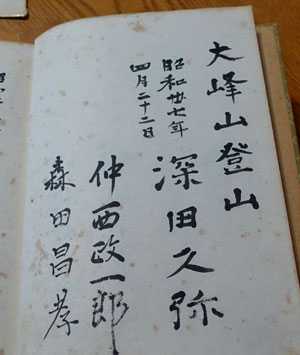 大峰山登山
昭和廿七年
四月二十二日
深田久弥
仲西政一郎
森田昌孝